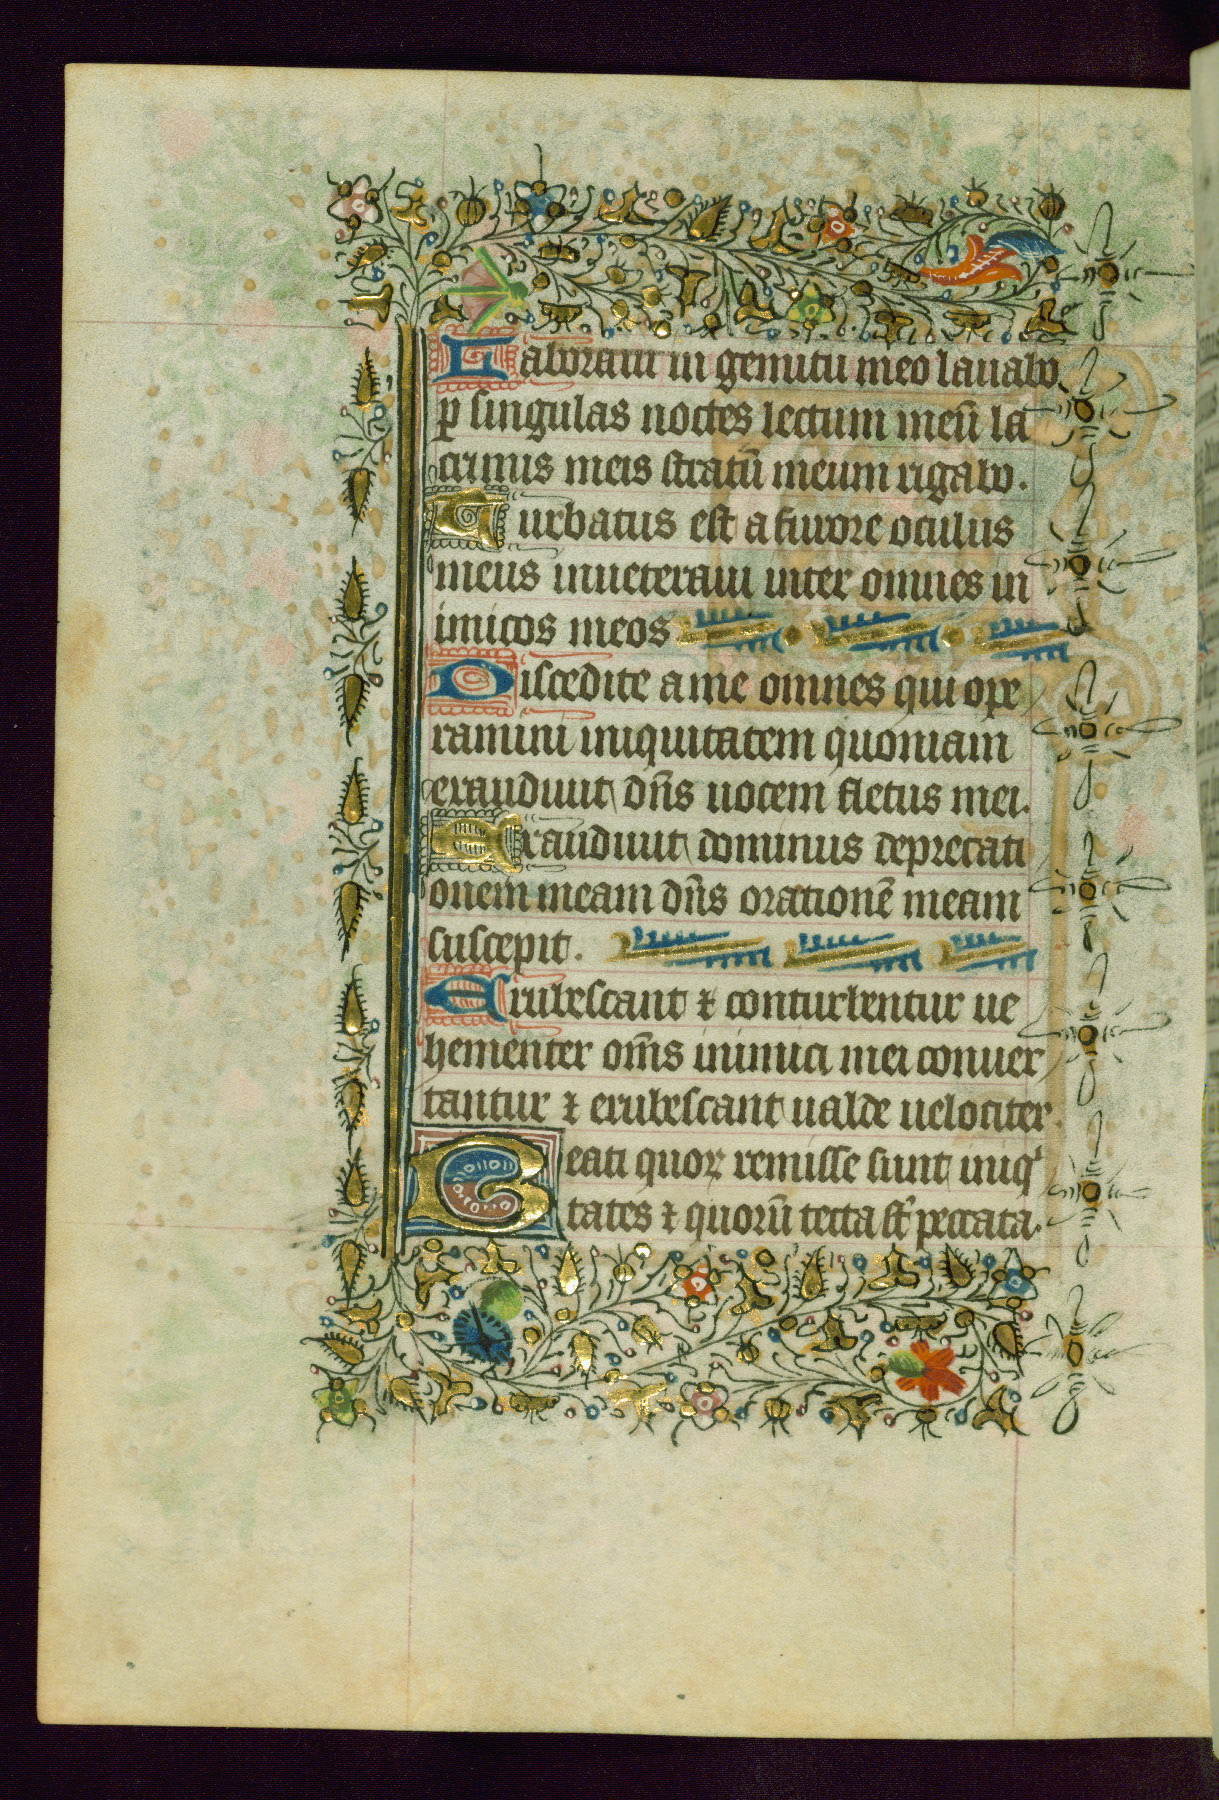 Laboraui in gemitu meo lauabo
ꝑ singulas noctes lectum meū la
crimis meis stratū meum rigabo.
Turbatus est a furore oculus
meus inueteraui inter omnes in
imicos meos
Discedite a me omnes qui ope
ramini iniquitatem quoniam
exaudiuit dn̄s uocem fletus mei.
Exaudiuit dominus deprecati
onem meam dn̄s orationē meam
suscepit.
Erubescant ⁊ conturbentur ue
hementer om̄s inimici mei conuer
tantur ⁊ erubescant ualde uelociter.
Beati quoꝝ remisse sunt iniqⁱ
tates ⁊ quorū tecta st̄ peccata.